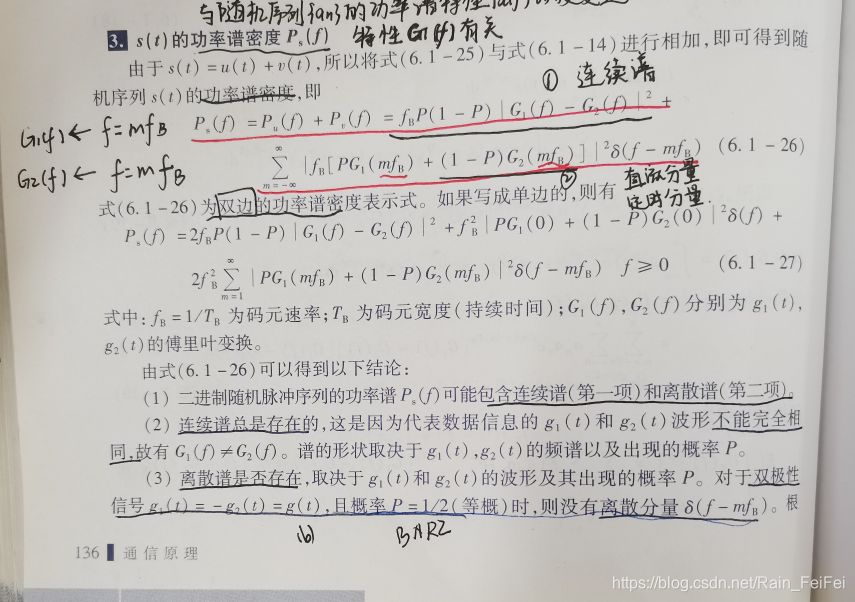 与随机序列{an}的功率谱特性
3. s(t)的功率谱密度 Pₛ(f) 特性G₁(f)有关
由于 s(t) = u(t) + v(t),所以将式(6.1-25)与式(6.1-14)进行相加,即可得到随
机序列 s(t)的功率谱密度,即
① 连续谱
Pₛ(f) = Pᵤ(f) + Pᵥ(f) = f_B P(1 - P) | G₁(f) - G₂(f) |² +
G₁(f) ← f = mf_B
∑_{m=-∞}^{∞} | f_B [PG₁(mf_B) + (1 - P)G₂(mf_B)] |² δ(f - mf_B) (6.1-26)
G₂(f) ← f = mf_B
② 直流分量
定时分量
式(6.1-26)为双边的功率谱密度表示式。如果写成单边的,则有
Pₛ(f) = 2f_B P(1 - P) | G₁(f) - G₂(f) |² + f_B² | PG₁(0) + (1 - P)G₂(0) |² δ(f) +
2f_B² ∑_{m=1}^{∞} | PG₁(mf_B) + (1 - P)G₂(mf_B) |² δ(f - mf_B) f ≥ 0 (6.1-27)
式中: f_B = 1/T_B 为码元速率; T_B 为码元宽度(持续时间); G₁(f), G₂(f)分别为 g₁(t),
g₂(t)的傅里叶变换。
由式(6.1-26)可以得到以下结论:
(1) 二进制随机脉冲序列的功率谱 Pₛ(f)可能包含连续谱(第一项)和离散谱(第二项)。
(2) 连续谱总是存在的,这是因为代表数据信息的 g₁(t)和 g₂(t)波形不能完全相
同,故有 G₁(f) ≠ G₂(f)。谱的形状取决于 g₁(t), g₂(t)的频谱以及出现的概率 P。
(3) 离散谱是否存在,取决于 g₁(t)和 g₂(t)的波形及其出现的概率 P。对于双极性
信号 g₁(t) = -g₂(t) = g(t),且概率 P = 1/2(等概)时,则没有离散分量 δ(f - mf_B)。根
(b) BARZ
136 通信原理
https://blog.csdn.net/Rain_FeiFei